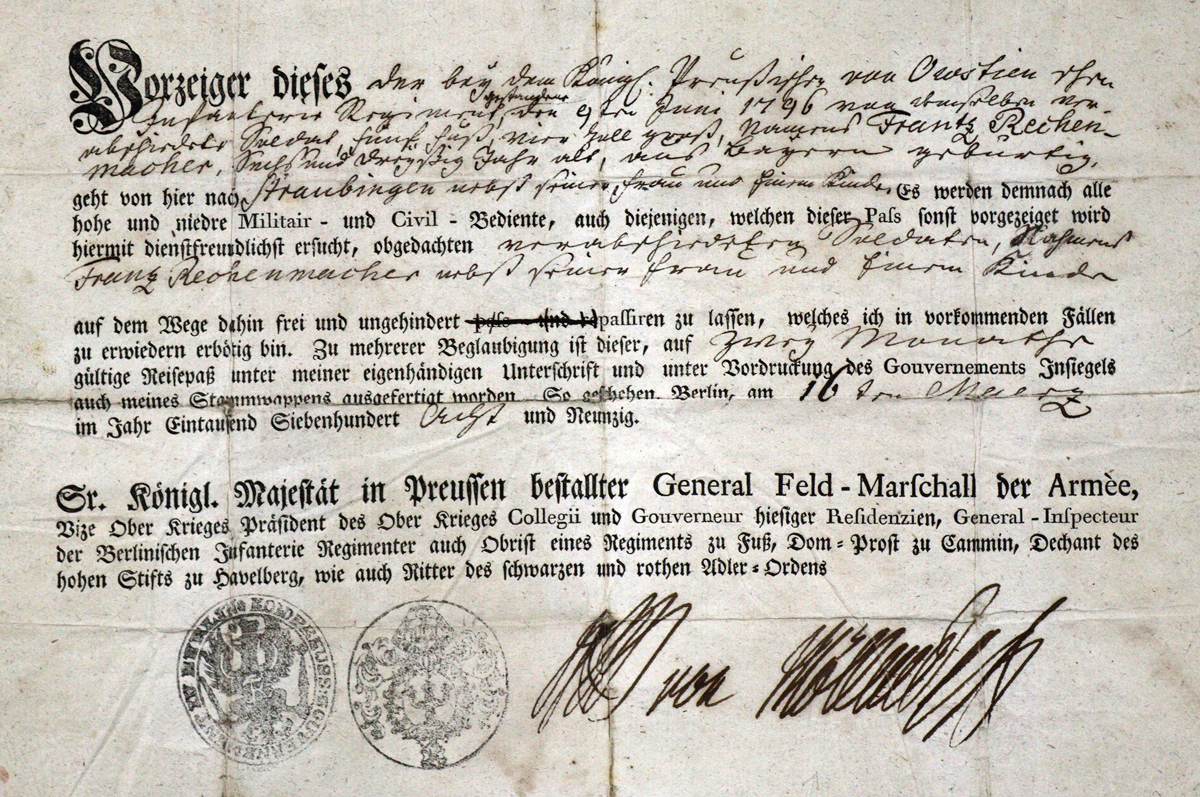 Vorzeiger dieses der bey dem Königl. Preußischen von Owstien schen
Infanterie Regiment gestandene den 9ten Juni 1796 von demselben ver-
abschiedete Soldat, fünf Fuß, vier Zoll groß, Namens Frantz Rechen-
macher, Sechs und dreyßig Jahr alt, aus Bayern gebürtig,
geht von hier nach Straubingen nebst seiner Frau und Einem Kinde. Es werden demnach alle
hohe und niedre Militair - und Civil - Bediente, auch diejenigen, welchen dieser Paß sonst vorgezeiget wird
hiermit dienstfreundlichst ersucht, obgedachten verabschiedeten Soldaten, Nahmens
Frantz Rechenmacher nebst seiner Frau und Einem Kinde
auf dem Wege dahin frei und ungehindert paß- und repassiren zu lassen, welches ich in vorkommenden Fällen
zu erwiedern erbötig bin. Zu mehrerer Beglaubigung ist dieser, auf Zwey Monathe
gültige Reisepaß unter meiner eigenhändigen Unterschrift und unter Vordruckung des Gouvernements Insiegels
auch meines Stammwappens ausgefertigt worden. So geschehen Berlin, am 16ten Maerz
im Jahr Eintausend Siebenhundert Acht und Neunzig.
Sr. Königl. Majestät in Preussen bestallter General Feld-Marschall der Armèe,
Vize Ober Krieges Präsident des Ober Krieges Collegii und Gouverneur hiesiger Residenzien, General-Inspecteur
der Berlinischen Infanterie Regimenter auch Obrist eines Regiments zu Fuß, Dom-Prost zu Cammin, Dechant des
hohen Stifts zu Havelberg, wie auch Ritter des schwarzen und rothen Adler-Ordens
von Möllendorff